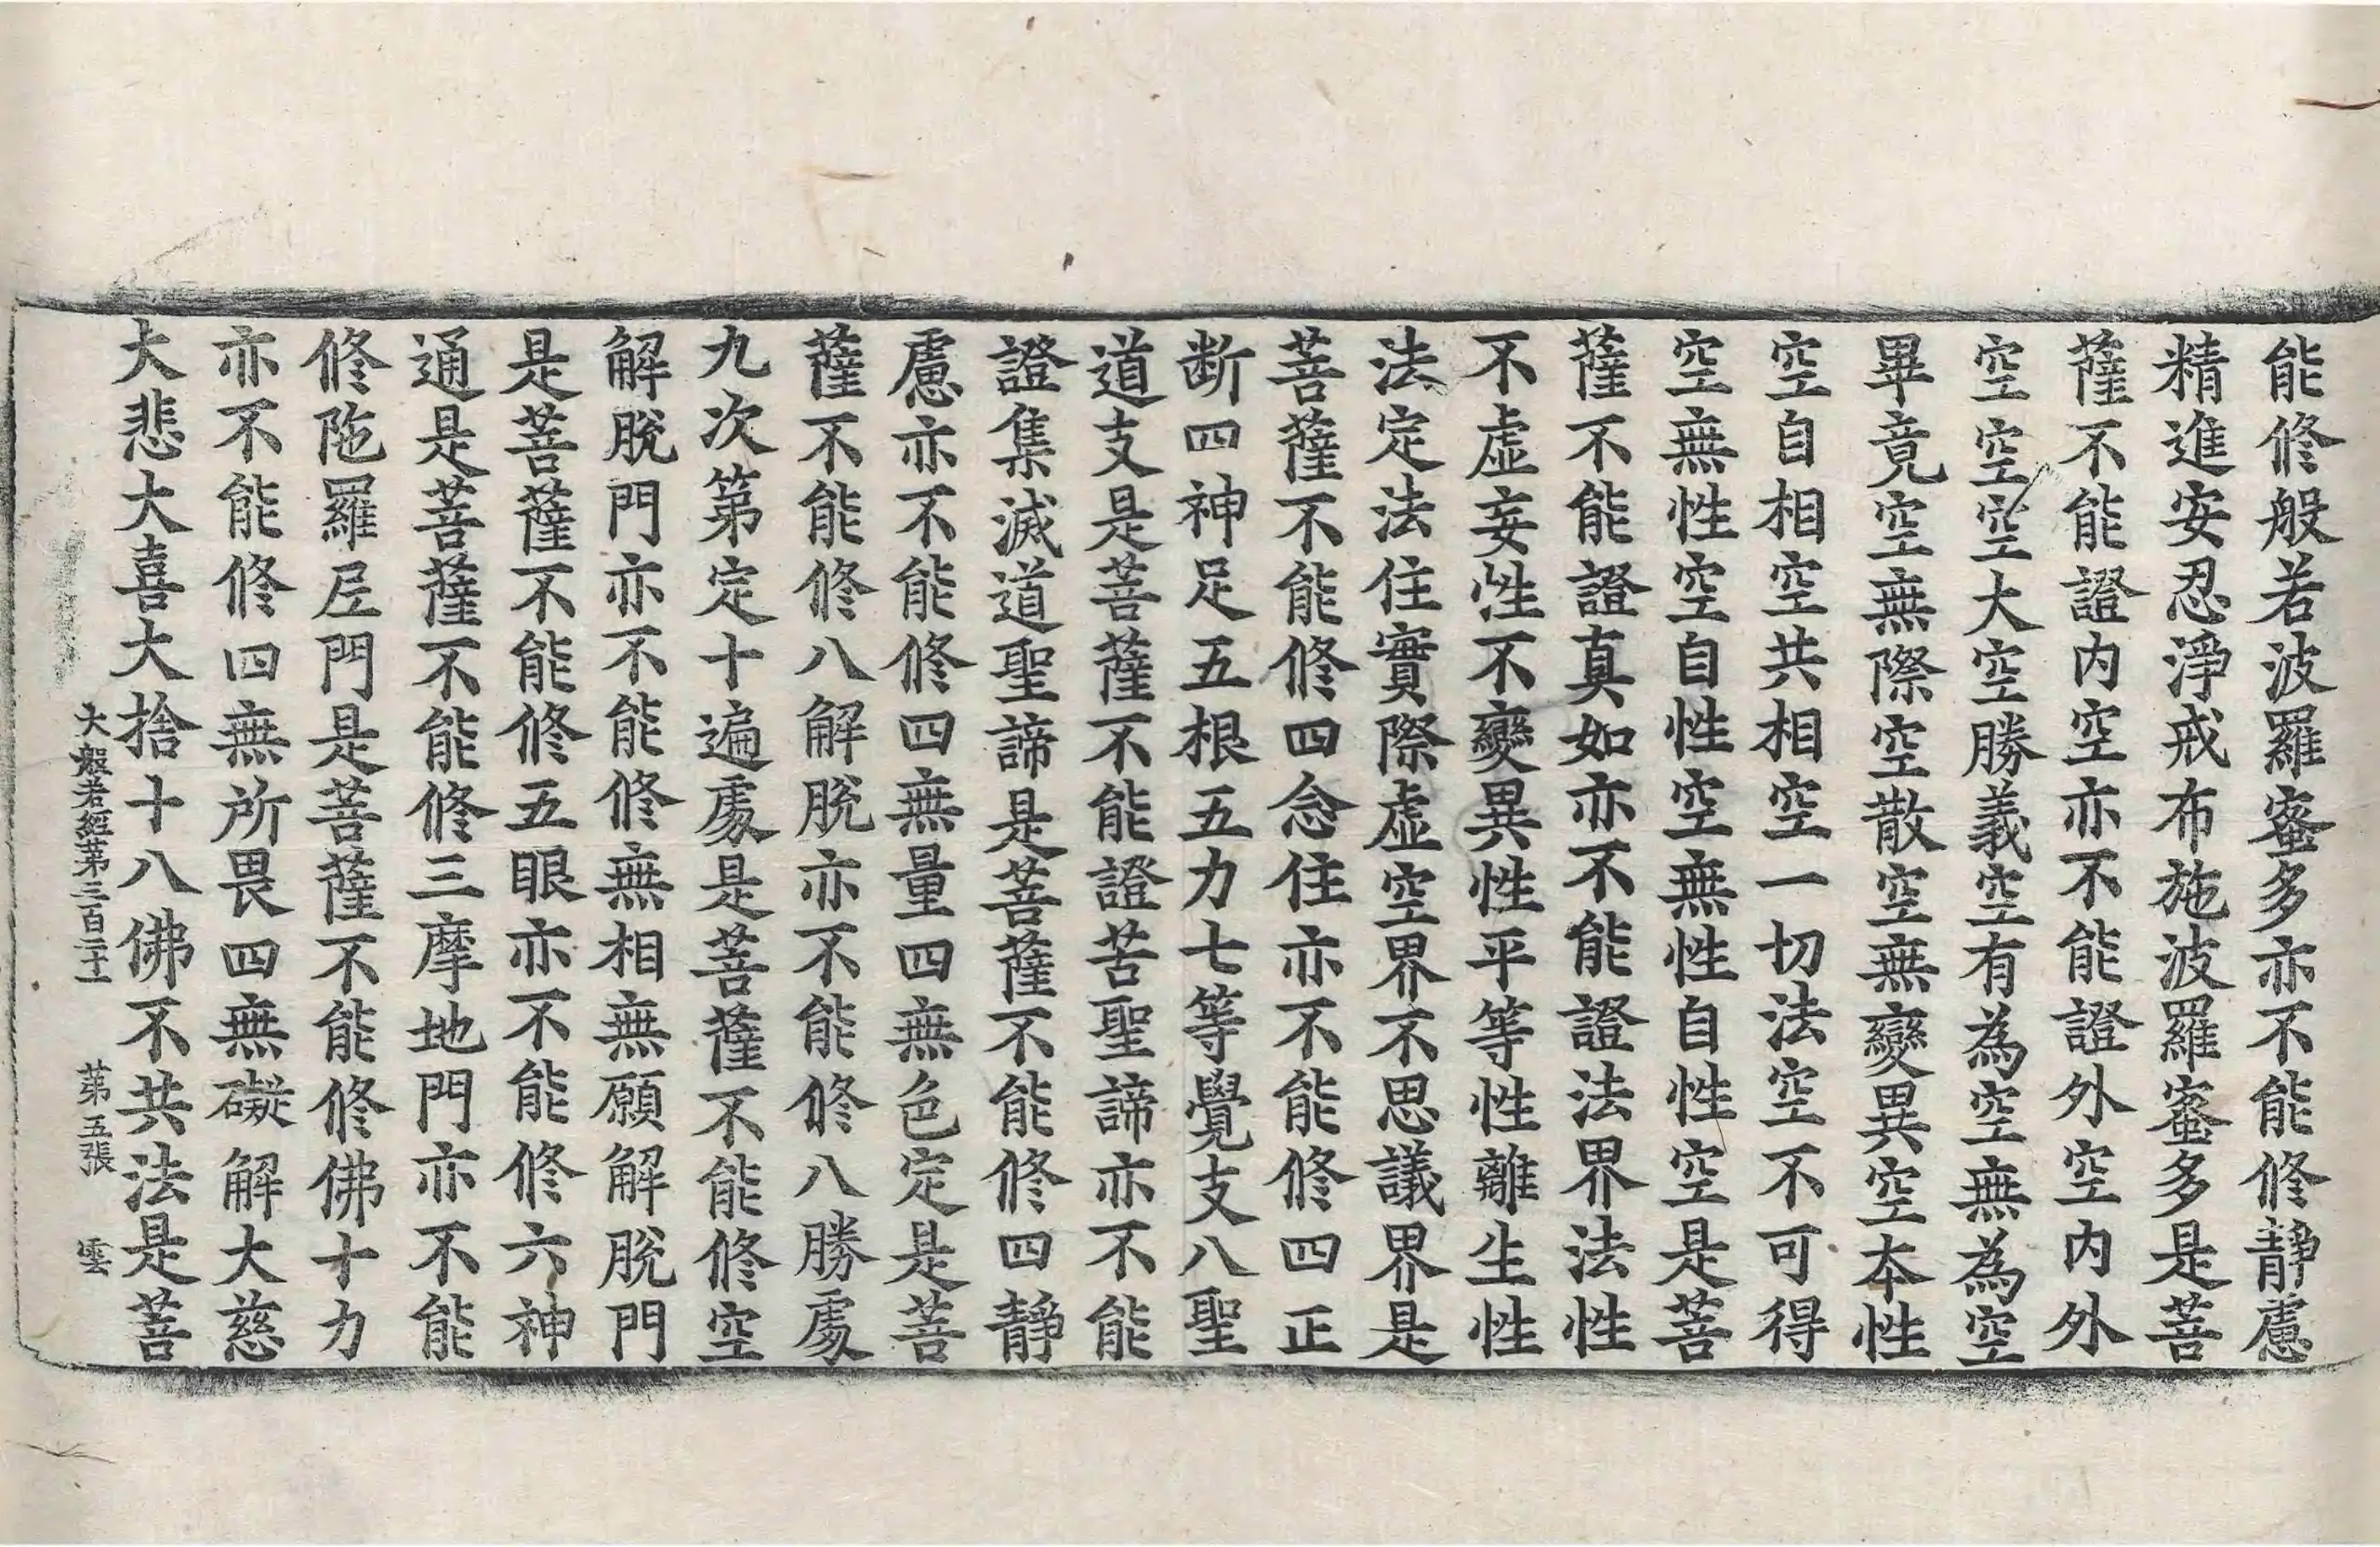 能修般若波羅蜜多亦不能修靜慮
精進安忍淨戒布施波羅蜜多是菩
薩不能證内空亦不能證外空内外
空空空大空勝義空有為空無為空
畢竟空無際空散空無變異空本性
空自相空共相空一切法空不可得
空無性空自性空無性自性空是菩
薩不能證真如亦不能證法界法性
不虛妄性不變異性平等性離生性
法定法住實際虛空界不思議界是
菩薩不能修四念住亦不能修四正
断四神足五根五力七等覺支八聖
道支是菩薩不能證苦聖諦亦不能
證集滅道聖諦是菩薩不能修四靜
慮亦不能修四無量四無色定是菩
薩不能修八解脫亦不能修八勝處
九次第定十遍處是菩薩不能修空
解脫門亦不能修無相無願解脫門
是菩薩不能修五眼亦不能修六神
通是菩薩不能修三摩地門亦不能
修陁羅尼門是菩薩不能修佛十力
亦不能修四無所畏四無礙解大慈
大悲大喜大捨十八佛不共法是菩
大般若經第三百二十一　第五張　雲